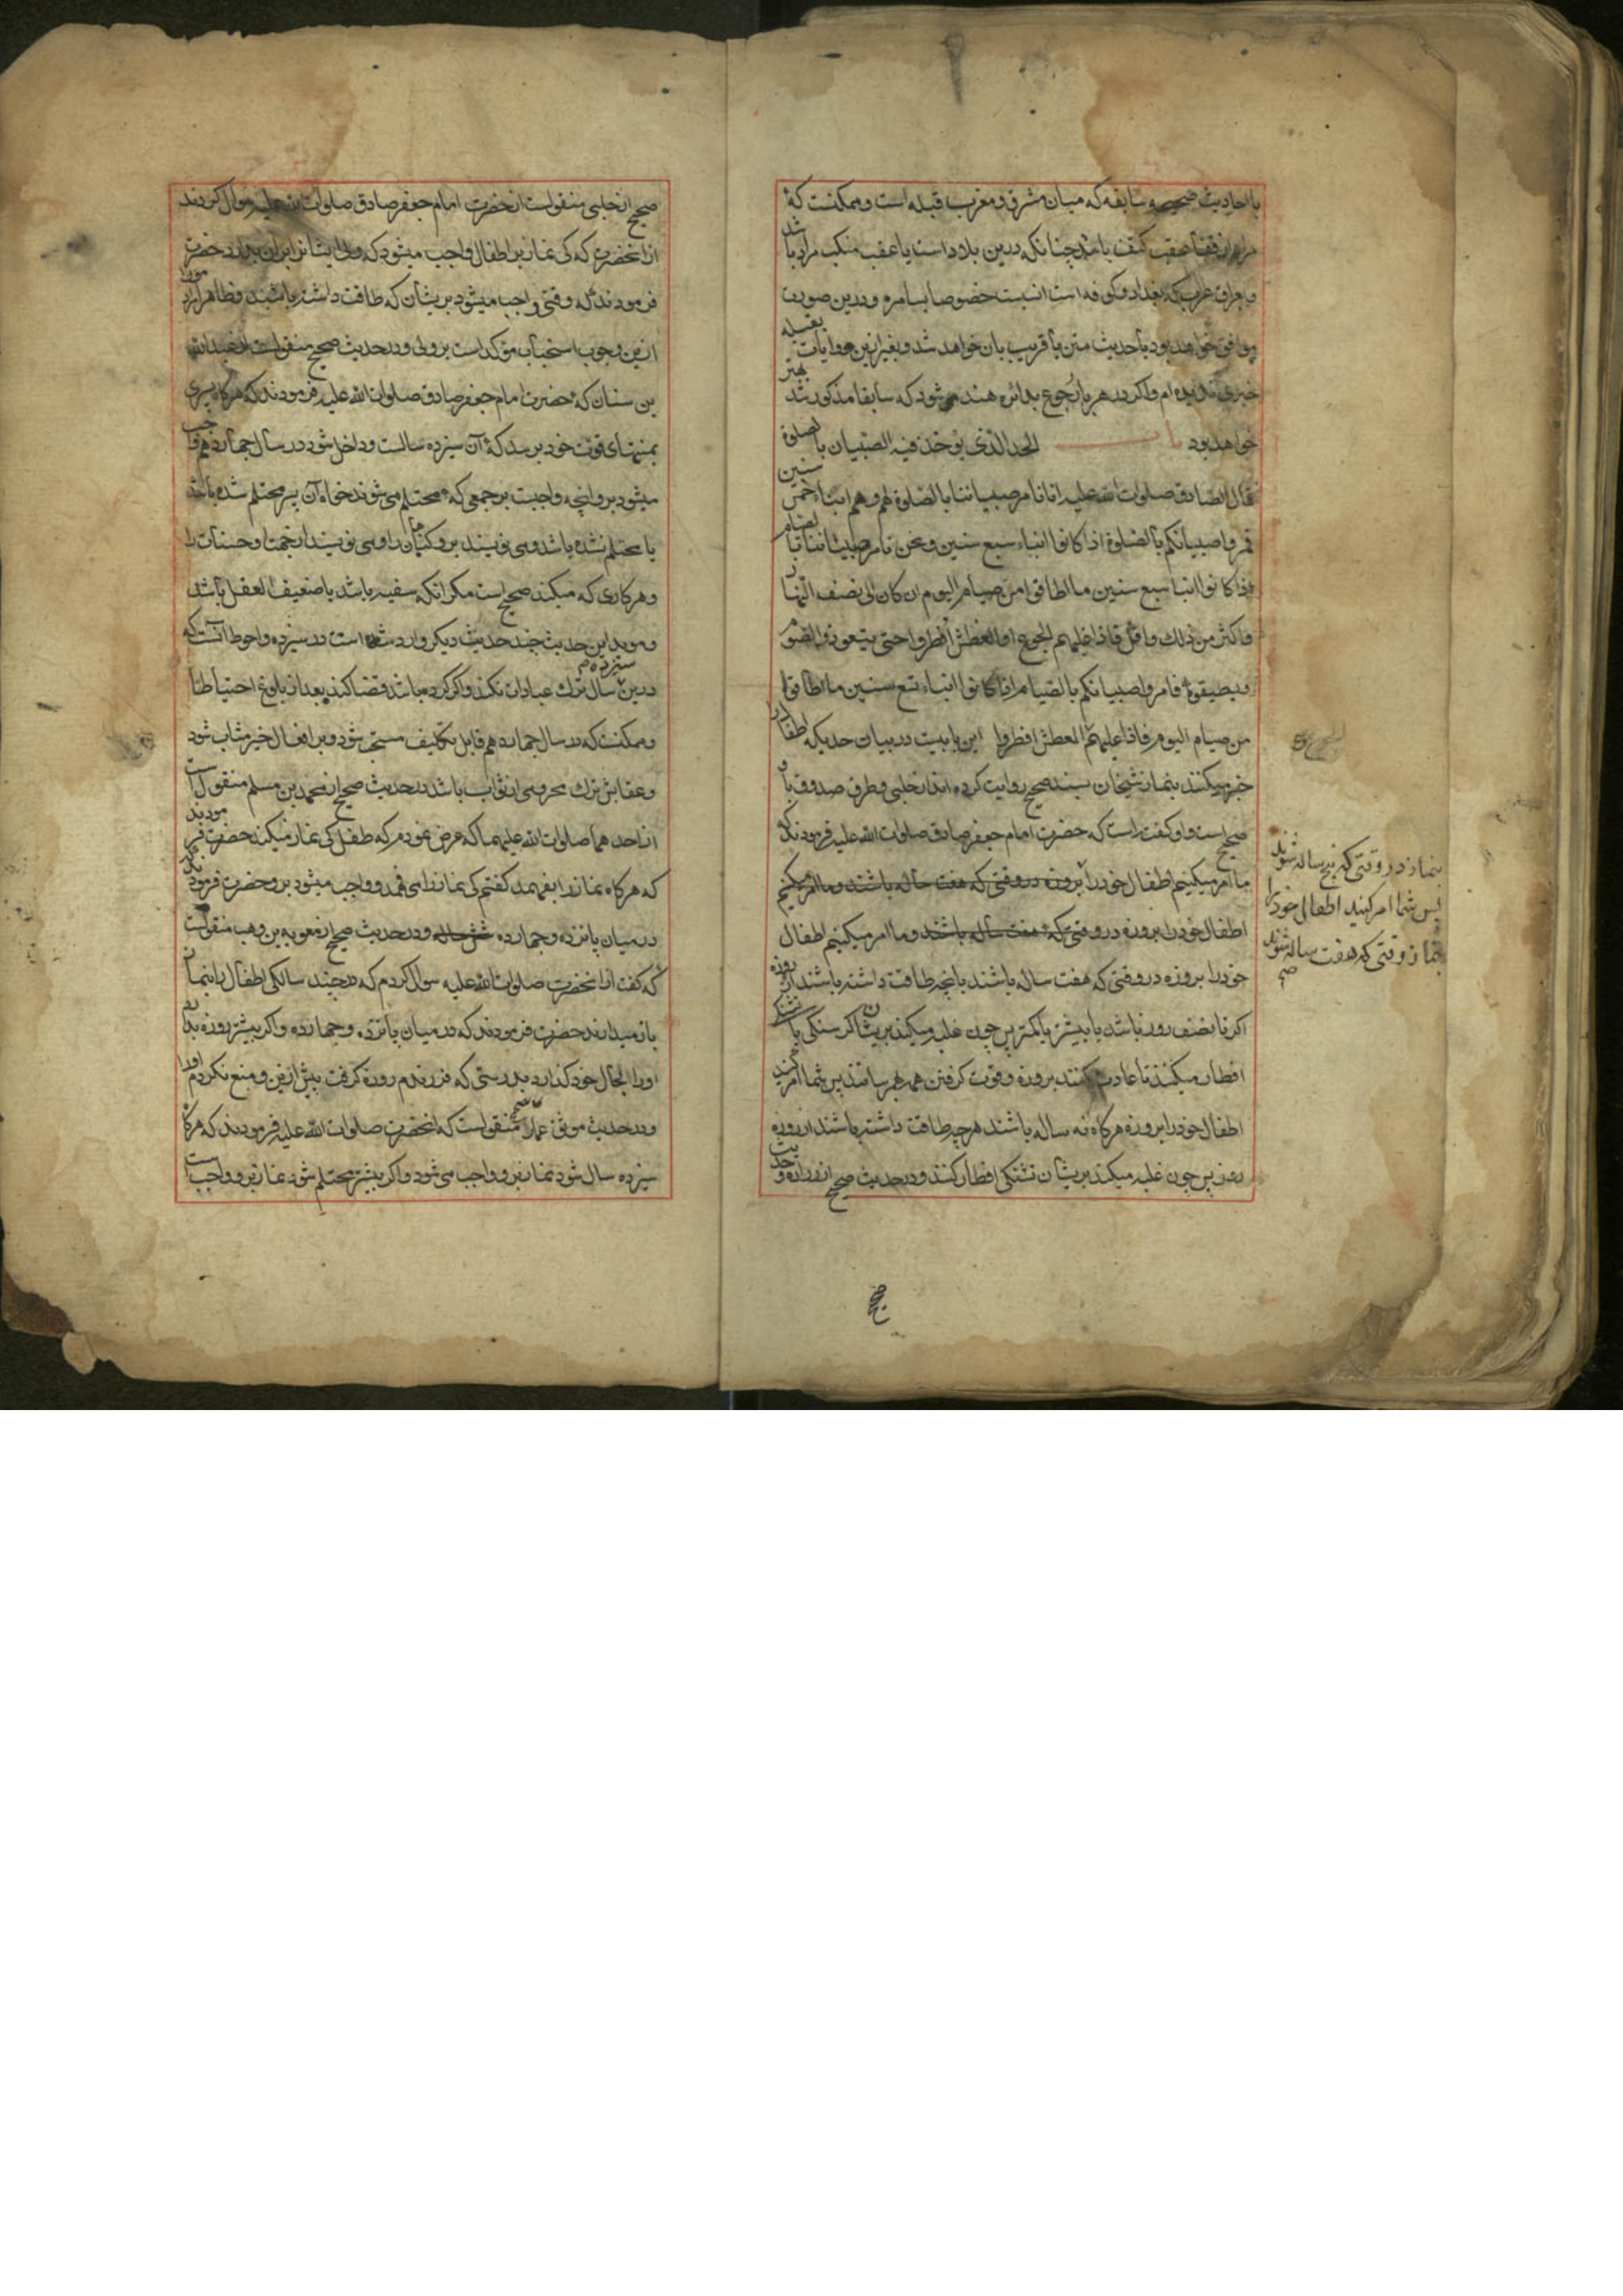 با احادیث صحیحه سابقه که میان مشرق و مغرب قبله است و ممکنست که
مراد از قفا عقب کتف باشد چنانکه درین بلاد است یا عقب منکب مراد باشد
و بعراق عرب که بغداد و کوفه است انسبت خصوصا بسامره و درین صورت
موافق خواهد بود با حدیث متن یا قریب بان خواهد شد و بغیر ازین روایات بقبله
خبری ندیده ام و اکر در هر باب رجوع بدائره هند می شود که سابقا مذکور شد بهتر
خواهد بود باب الحد الذی یؤخذ فیه الصبیان بالصلوة
قال الصادق صلوات الله علیه انا نامر صبیاننا بالصلوة و هم ابناء خمس سنین
فمروا صبیانکم بالصلوة اذا کانوا ابناء سبع سنین و نحن نامر صبیاننا بالصیام
اذا کانوا ابناء سبع سنین ما اطاقوا من صیام الیوم ان کان الی نصف النهار
و اکثر من ذلک و اقل فاذا غلبهم الجوع او العطش افطروا حتی یتعودوا الصوم
و یطیقوه فامروا صبیانکم بالصیام اذا کانوا ابناء تسع سنین ما اطاقوا
من صیام الیوم فاذا غلبهم العطش افطروا این بابیست در بیان حدیکه اطفال را
جبر میکنند بنماز شیخان بسند صحیح روایت کرده اند از حلبی و طرق صدوق باو
صحیح است و او کفته است که حضرت امام جعفر صادق صلوات الله علیه فرمودند که
ما امر میکنیم اطفال خود را بروزه در وقتی که هفت ساله باشند و ما امر میکنیم
اطفال خود را بروزه در وقتی که هفت ساله باشند و ما امر میکنیم اطفال
خود را بروزه در وقتی که هفت ساله باشند بانچه طاقت داشته باشند از روزه
اکر تا نصف روز باشد یا بیشتر یا کمتر پس چون غلبه میکند بریشان کرسنکی یا تشنکی
افطار میکنند تا عادت کنند بروزه و قوت کرفتن همه بهم رسانند پس شما امر کنید
اطفال خود را بروزه هرکاه نه ساله باشند هرچه طاقت داشته باشند از روزه
روز پس چون غلبه میکند بریشان تشنکی افطار کنند و در حدیث صحیح از زراره و حدیث
بنماز در وقتی که پنج ساله شوند
پس شما امر کنید اطفال خود را
بنماز وقتی که هفت ساله شوند
صح
صحیح از حلبی منقولست از حضرت امام جعفر صادق صلوات الله علیه سوال کردند
از انحضرت که کی نماز بر اطفال واجب میشود که ولی ایشانرا بران بدارد حضرت
فرمودند که وقتی واجب میشود بریشان که طاقت داشته باشند و ظاهرا مراد
ازین وجوب استحباب مؤکد است بر ولی و در حدیث صحیح منقولست از عبدالله
بن سنان که حضرت امام جعفر صادق صلوات الله علیه فرمودند که هرکاه پسری
بمنتهای قوت خود برسد که آن سیزده سالست و داخل شود در سال چهاردهم واجب
میشود برو انچه واجبست بر جمعی که محتلم می شوند خواه آن پسر محتلم شده باشد
یا محتلم نشده باشد و می نویسند برو کناهان را و می نویسند از جهت او حسنات را
و هر کاری که میکند صحیح است مکر انکه سفیه باشد یا ضعیف العقل باشد
و موید این حدیث چند حدیث دیکر وارد شده است در سیزده و احوط آنست که
درین سال سیزدهم ترک عبادات نکند و اکر کرده باشد قضا کند بعد از بلوغ احتیاطا
و ممکنست که در سال چهاردهم قابل تکلیف مستحب شود و بر افعال خیر مثاب شود
و عقابش ترک محرومی از ثواب باشد در حدیث صحیح از محمد بن مسلم منقول است
از احدهما صلوات الله علیهما که عرض نمودم که طفل کی نماز میکند حضرت فرمودند
که هرکاه نماز را بفهمد کفتم کی نماز را می فهمد و واجب میشود برو حضرت فرمودند که
در میان پانزده و چهارده شش ساله و در حدیث صحیح از معویه بن وهب منقولست
که کفت از انحضرت صلوات الله علیه سوال کردم که در چند سالکی اطفال را بنماز
باز میدارند حضرت فرمودند که در میان پانزده و چهارده و اکر بیشتر روزه بدارد
او را بحال خود کذارد بدرستی که فرزندم روزه کرفت پیش ازین و منع نکردم اورا
و در حدیث موثق عمار منقولست که انحضرت صلوات الله علیه فرمودند که هرکاه
سیزده سال شود نماز برو واجب می شود و اکر بیشتر محتلم شود نماز برو واجب است